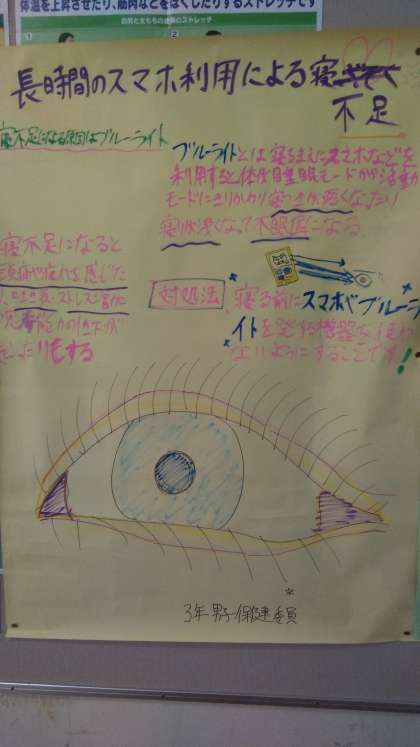 体温を上昇させたり、筋肉などをほぐしたりするストレッチです
長時間のスマホ利用による寝
不足
寝不足になる原因はブルーライト
ブルーライトとは寝るまえにスマホなどを
利用すると体が睡眠モードから活動
モードにきりかわり寝つきが悪くなったり
眠りが浅くなって不眠症になる
寝不足になると
頭痛や疲れを感じた
ストレス
能力の低下が
たりもする
対処法
寝る前にスマホやブルーラ
イトを発する機器を
ないようにすることです!
3年男子保健委員